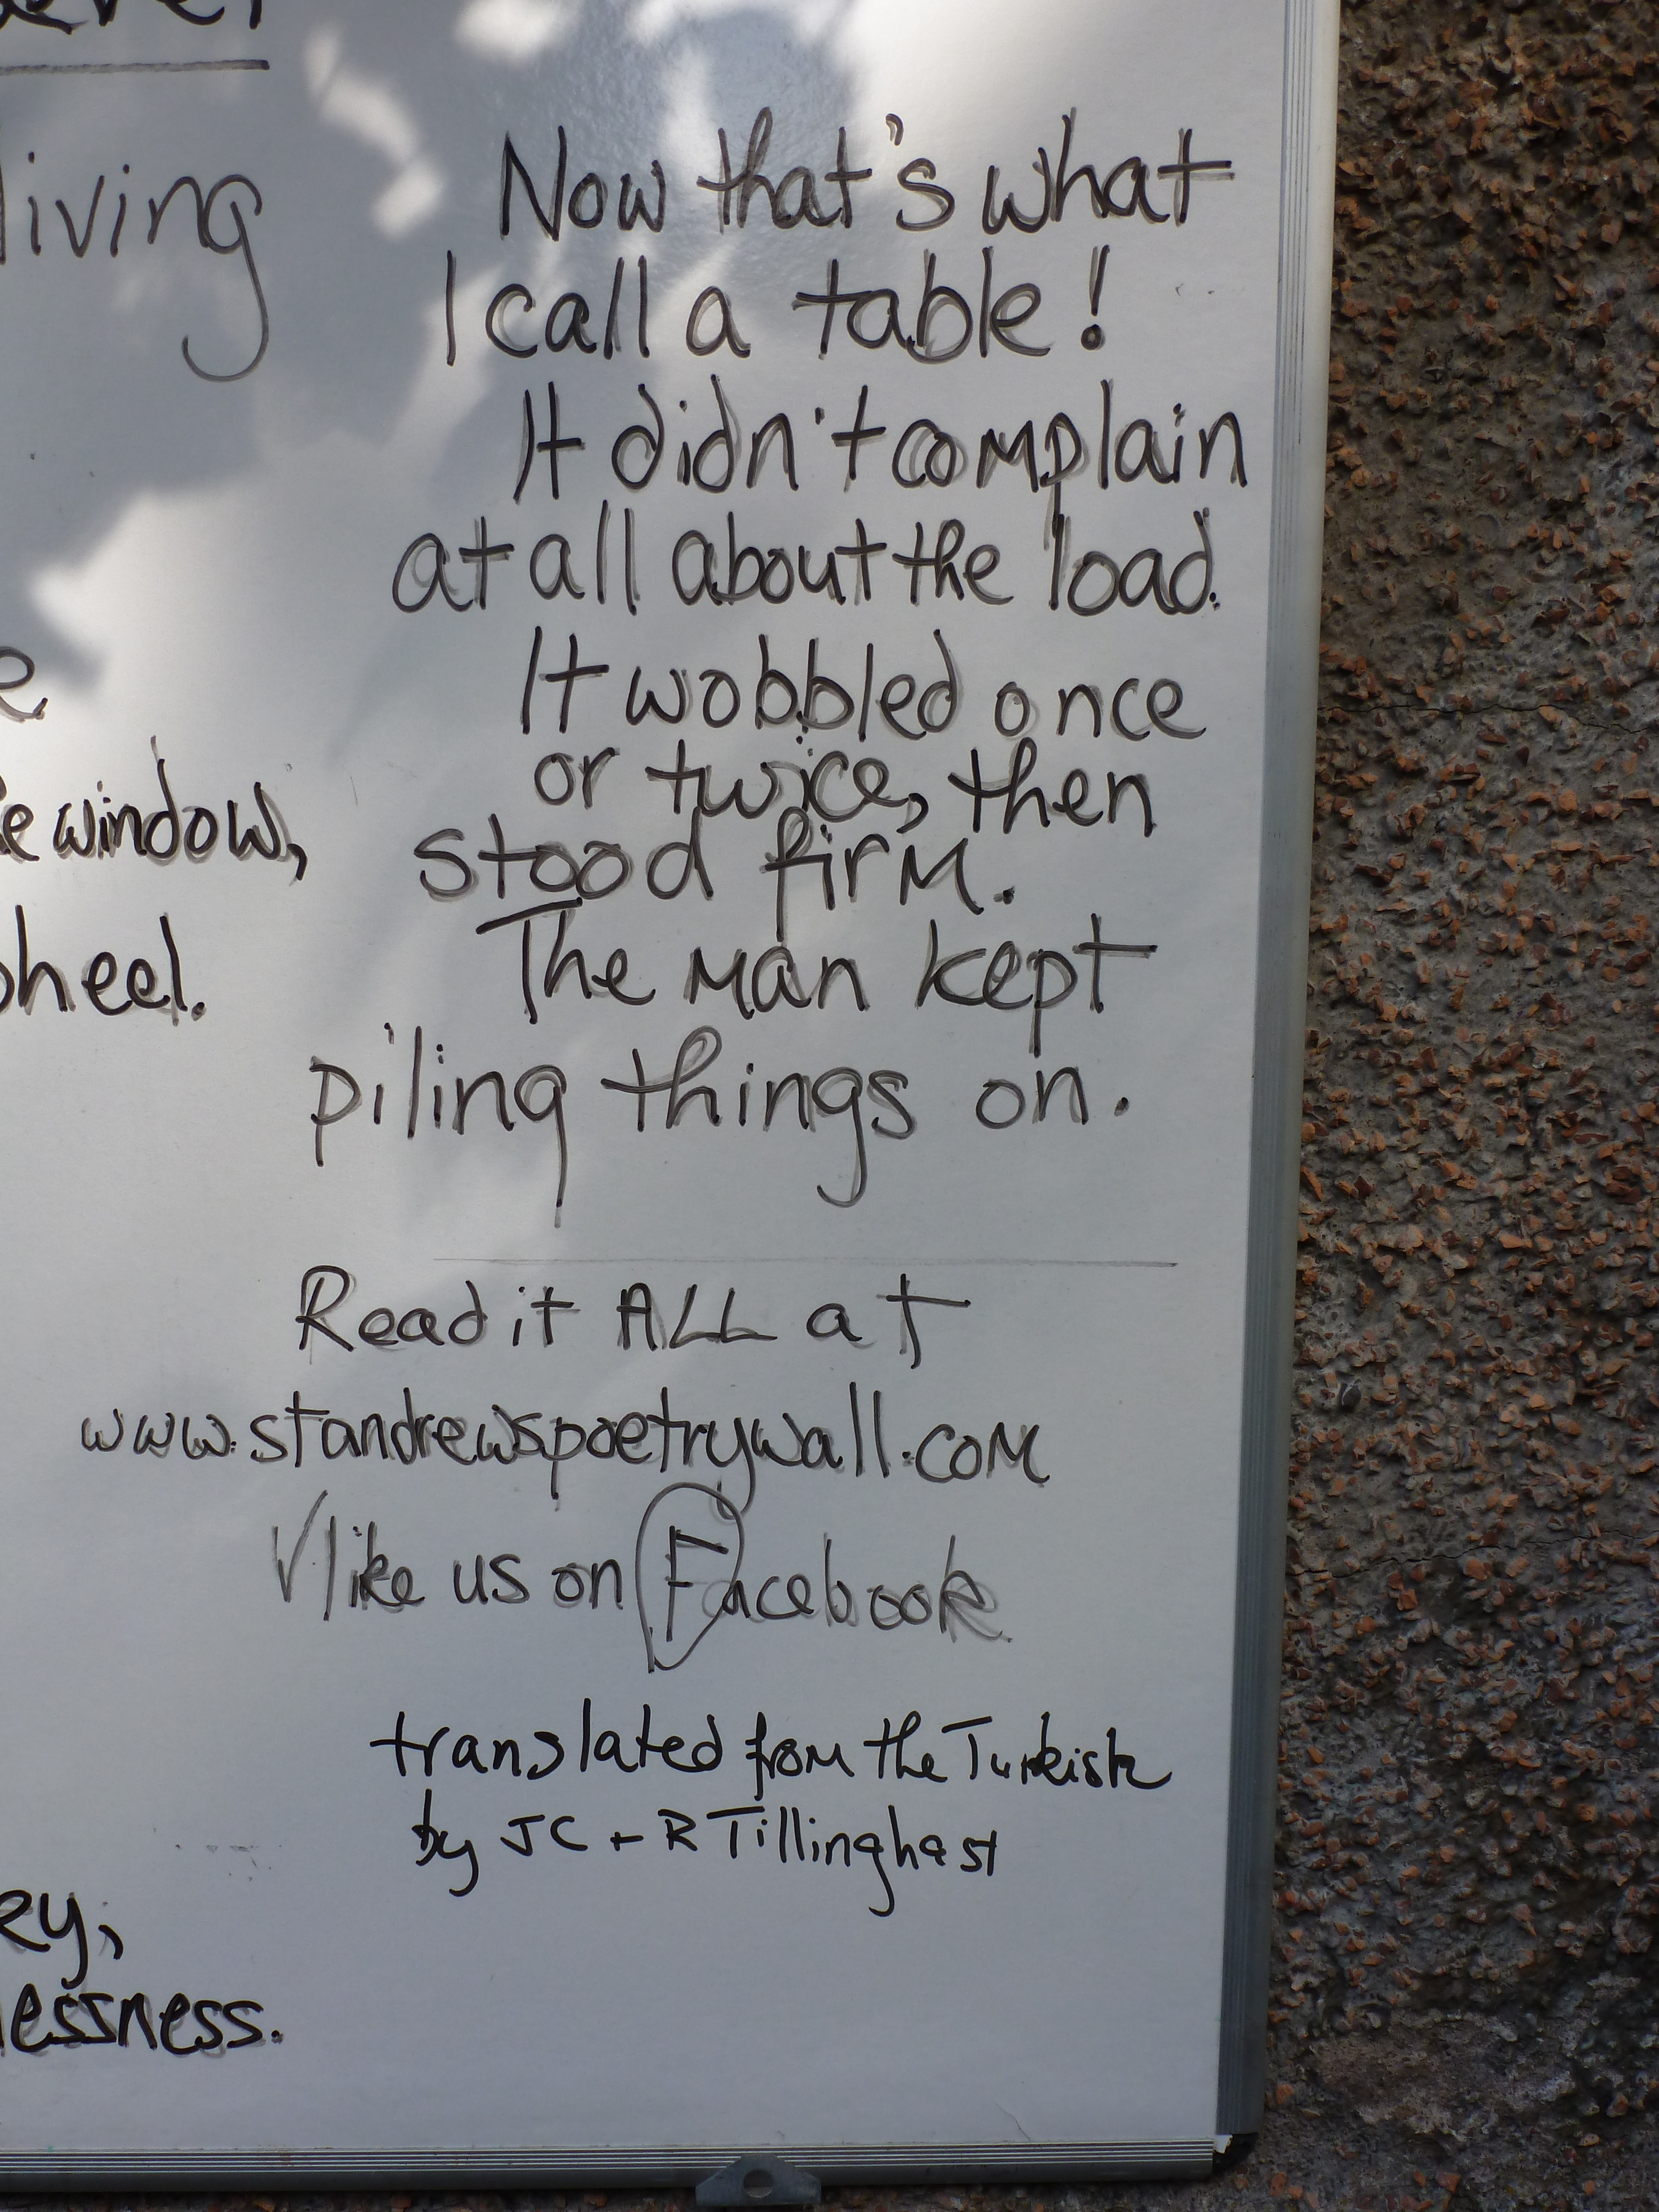 living
window,
heel.
lessness.
Now that's what
I call a table!
It didn't complain
at all about the load.
It wobbled once
or twice, then
stood firm.
The man kept
piling things on.
Read it ALL at
www.standrewspoetrywall.com
like us on Facebook
translated from the Turkish
by JC + R Tillinghast